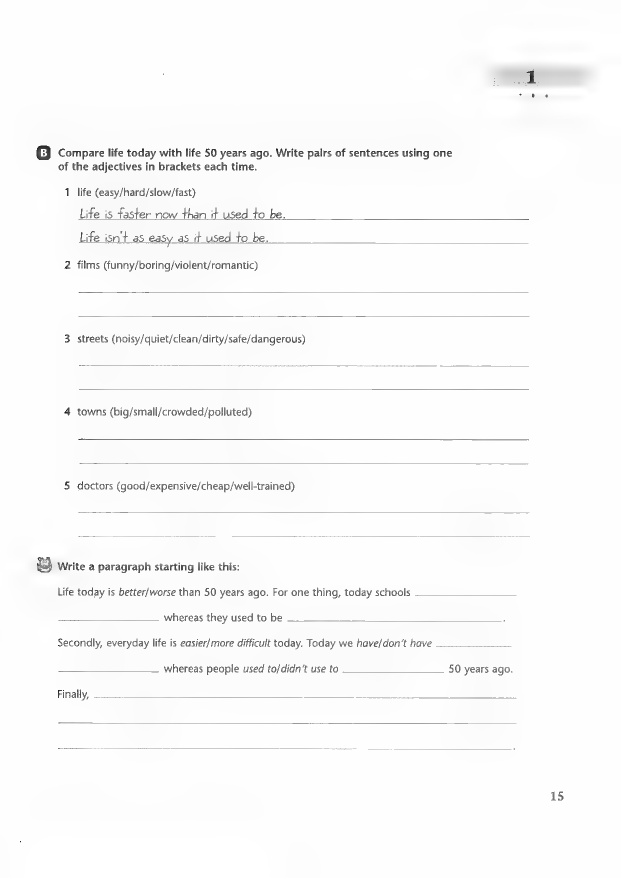 1
B Compare life today with life 50 years ago. Write pairs of sentences using one
of the adjectives in brackets each time.
1 life (easy/hard/slow/fast)
Life is faster now than it used to be.
Life isn't as easy as it used to be.
2 films (funny/boring/violent/romantic)
3 streets (noisy/quiet/clean/dirty/safe/dangerous)
4 towns (big/small/crowded/polluted)
5 doctors (good/expensive/cheap/well-trained)
Write a paragraph starting like this:
Life today is better/worse than 50 years ago. For one thing, today schools
whereas they used to be .
Secondly, everyday life is easier/more difficult today. Today we have/don't have
whereas people used to/didn't use to 50 years ago.
Finally,
.
15